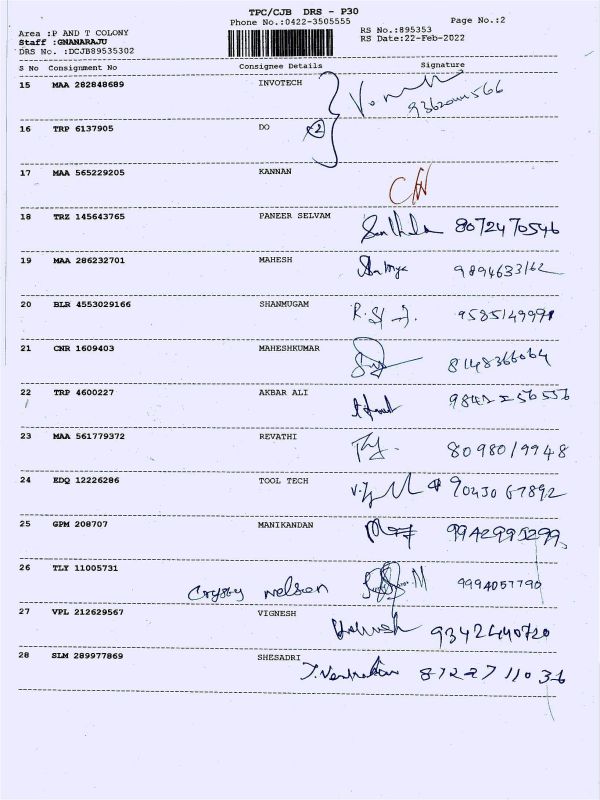 TPC/CJB DRS - P30
Phone No.:0422-3505555
Page No.:2
Area :P AND T COLONY
Staff :GNANARAJU
DRS No. :DCJB89535302
RS No.:895353
RS Date:22-Feb-2022
S No Consignment No Consignee Details Signature
15 MAA 282848689 INVOTECH
16 TRP 6137905 DO
17 MAA 565229205 KANNAN
18 TRZ 145643765 PANEER SELVAM 8072470546
19 MAA 286232701 MAHESH 9894633162
20 BLR 4553029166 SHANMUGAM
21 CNR 1609403 MAHESHKUMAR 8148366064
22 TRP 4600227 AKBAR ALI
23 MAA 561779372 REVATHI 8098019948
24 EDQ 12226286 TOOL TECH
25 GPM 208707 MANIKANDAN 9942995299
26 TLY 11005731
nelson 9994057790
27 VPL 212629567 VIGNESH
28 SLM 289977869 SHESADRI